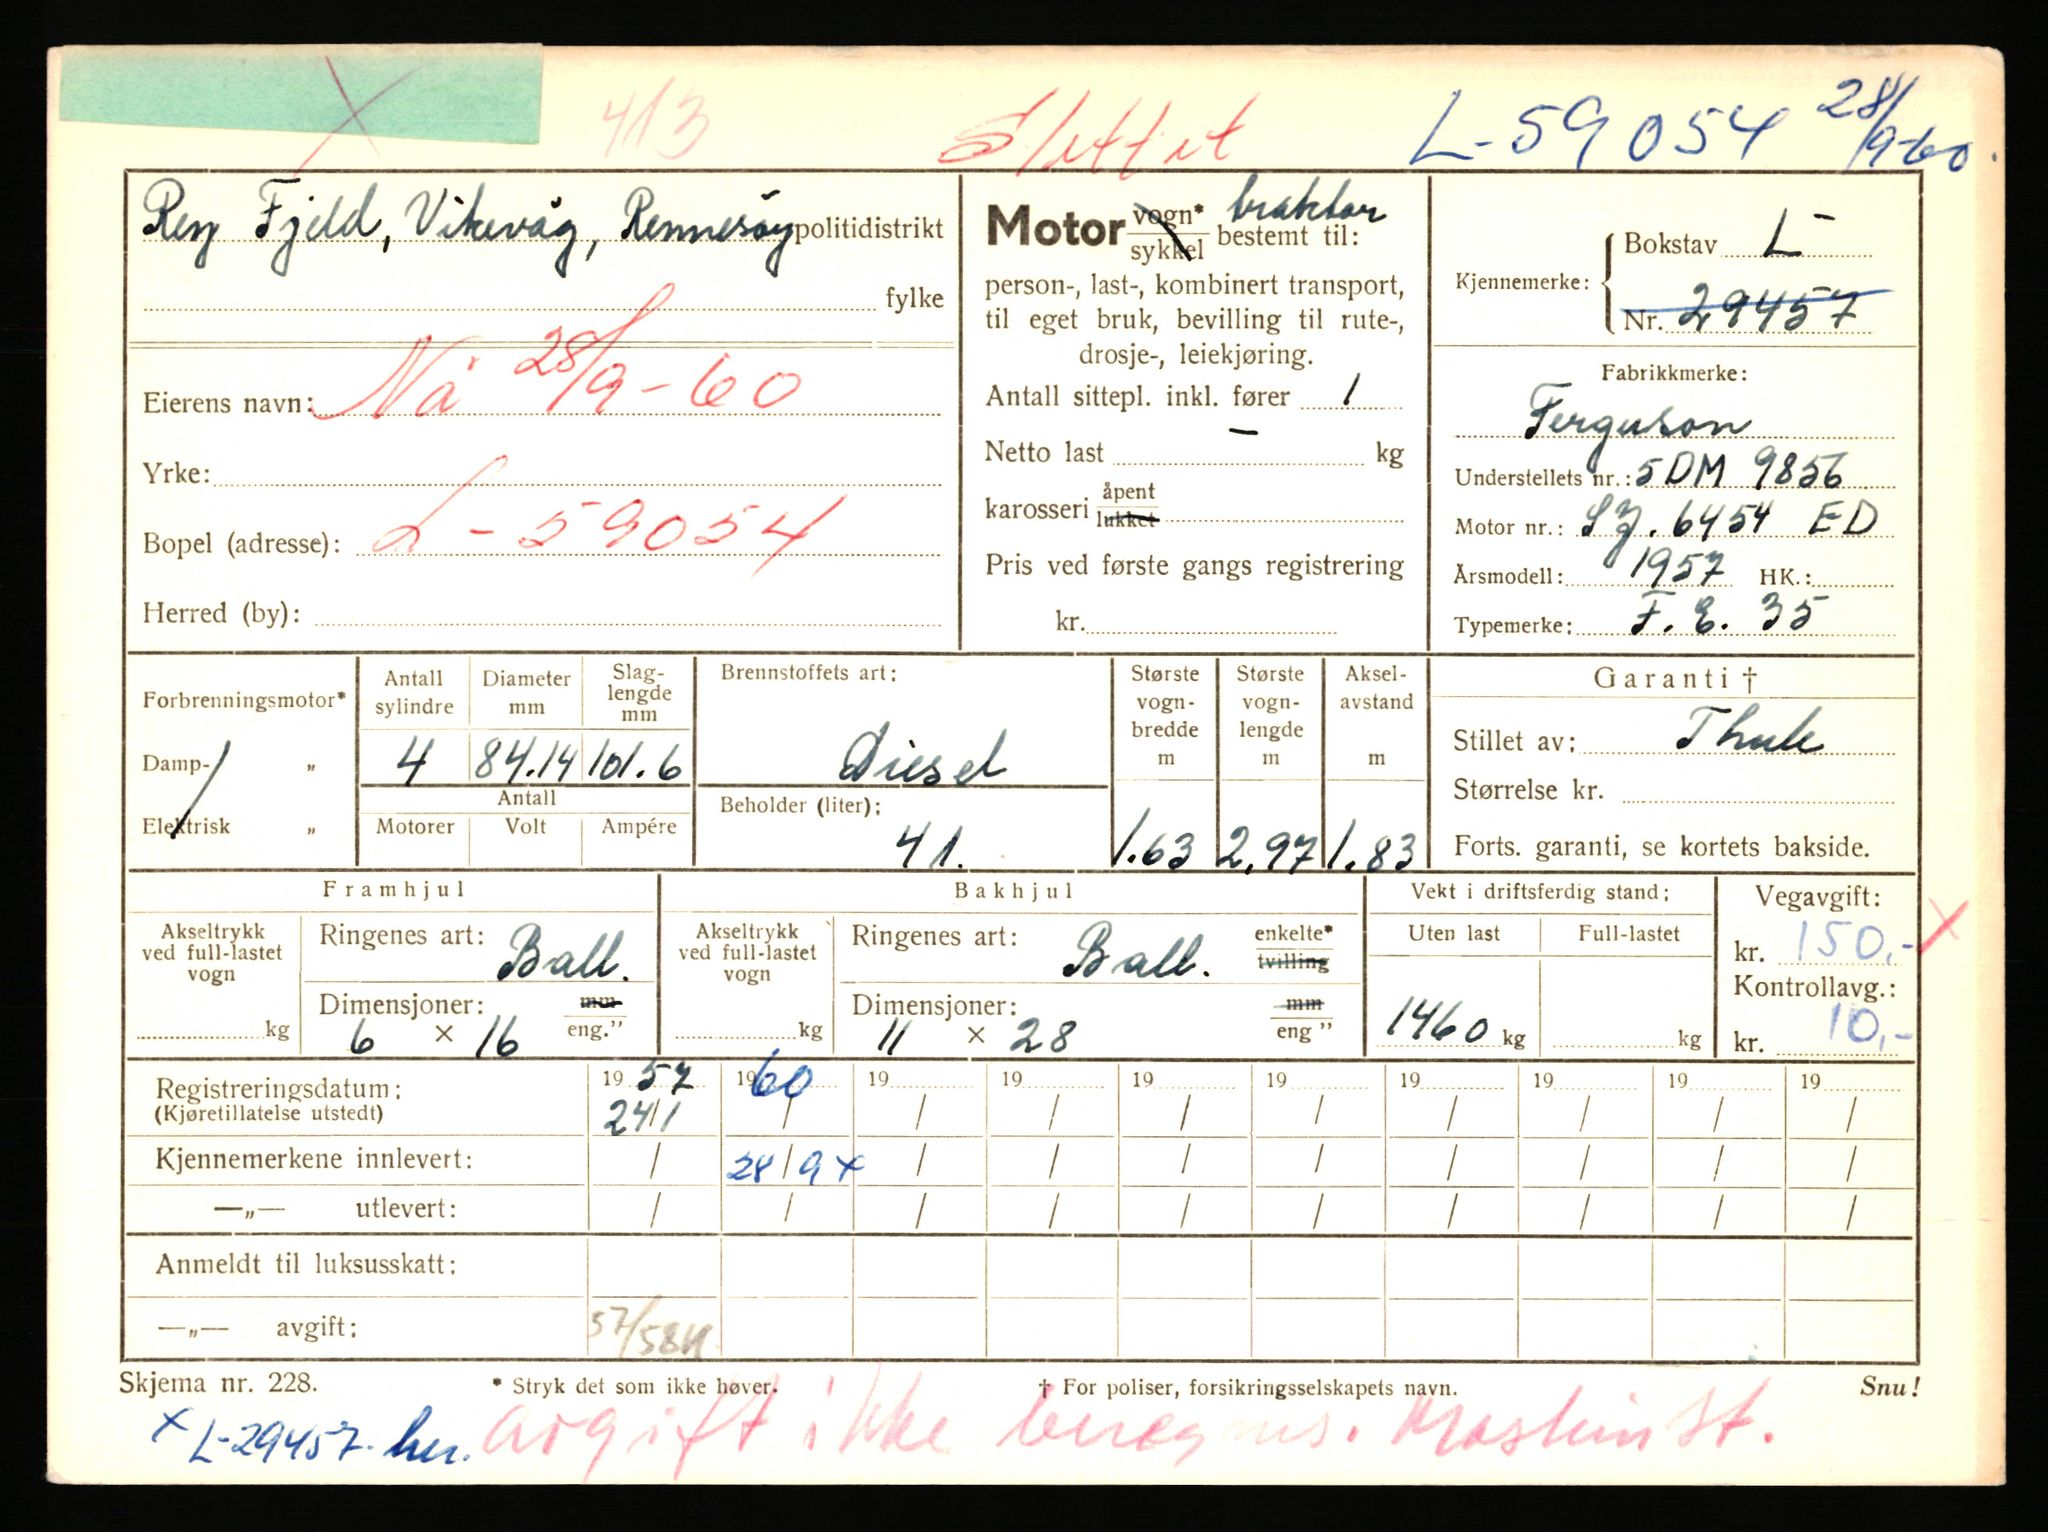 413 Slettet L-59054 28/9-60.
Fjeld, Vikevåg, Rennesöy politidistrikt
fylke
Eierens navn: Nå 28/9-60
Yrke:
Bopel (adresse): L-59054
Herred (by):
Motor vogn* sykkel traktor bestemt til:
person-, last-, kombinert transport,
til eget bruk, bevilling til rute-,
drosje-, leiekjøring.
Antall sittepl. inkl. fører 1
Netto last — kg
karosseri åpent lukket
Pris ved første gangs registrering
kr.
Kjennemerke: Bokstav L
Nr. 29457
Fabrikkmerke:
Ferguson
Understellets nr.: 5DM 9856
Motor nr.: SJ. 6454 ED
Årsmodell: 1957 HK.:
Typemerke: F.E. 35
Forbrenningsmotor*
Damp- „
Elektrisk „
Antall sylindre Diameter mm Slaglengde mm
4 84.14 101.6
Antall
Motorer Volt Ampére
Brennstoffets art:
Diesel
Beholder (liter):
41.
Største vognbredde m
1.63
Største vognlengde m
2,97
Akselavstand m
1.83
Garanti †
Stillet av: Thule
Størrelse kr.
Forts. garanti, se kortets bakside.
Framhjul
Akseltrykk ved full-lastet vogn
kg
Ringenes art: Ball.
Dimensjoner: mm
6 × 16 eng.”
Bakhjul
Akseltrykk ved full-lastet vogn
kg
Ringenes art: Ball. enkelte* tvilling
Dimensjoner: mm
11 × 28 eng ”
Vekt i driftsferdig stand:
Uten last Full-lastet
1460 kg kg
Vegavgift:
kr. 150,- X
Kontrollavg.:
kr. 10,-
Registreringsdatum: 1957 1960 19 19 19 19 19 19 19 19
(Kjøretillatelse utstedt) 24/1 / / / / / / / / /
Kjennemerkene innlevert: / 28/9 x / / / / / / / /
—„— utlevert: / / / / / / / / / /
Anmeldt til luksusskatt:
—„— avgift: 57/58
Skjema nr. 228. * Stryk det som ikke høver. † For poliser, forsikringsselskapets navn. Snu!
x L-29457 her. avgift ikke beregnes. Maskinst.